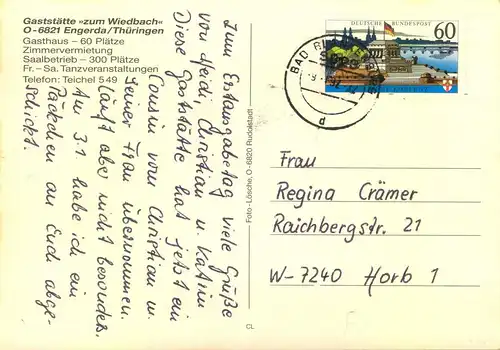 Gaststätte »zum Wiedbach«
O-6821 Engerda/Thüringen
Gasthaus – 60 Plätze
Zimmervermietung
Saalbetrieb – 300 Plätze
Fr.-Sa. Tanzveranstaltungen
Telefon: Teichel 549
Zum Erstausgabetag viele Grüße
von Heidi, Christian u. Katrin
Diese Gaststätte hat jetzt ein
Cousin vom Christian u.
seiner Frau übernommen.
Läuft aber nicht besonders.
Am 3.1 habe ich ein
Päckchen an Euch abge-
schickt.
Foto-Lösche, O-6820 Rudolstadt
CL
DEUTSCHE BUNDESPOST
60
BAD
d
Frau
Regina Crämer
Raichbergstr. 21
W-7240 Horb 1